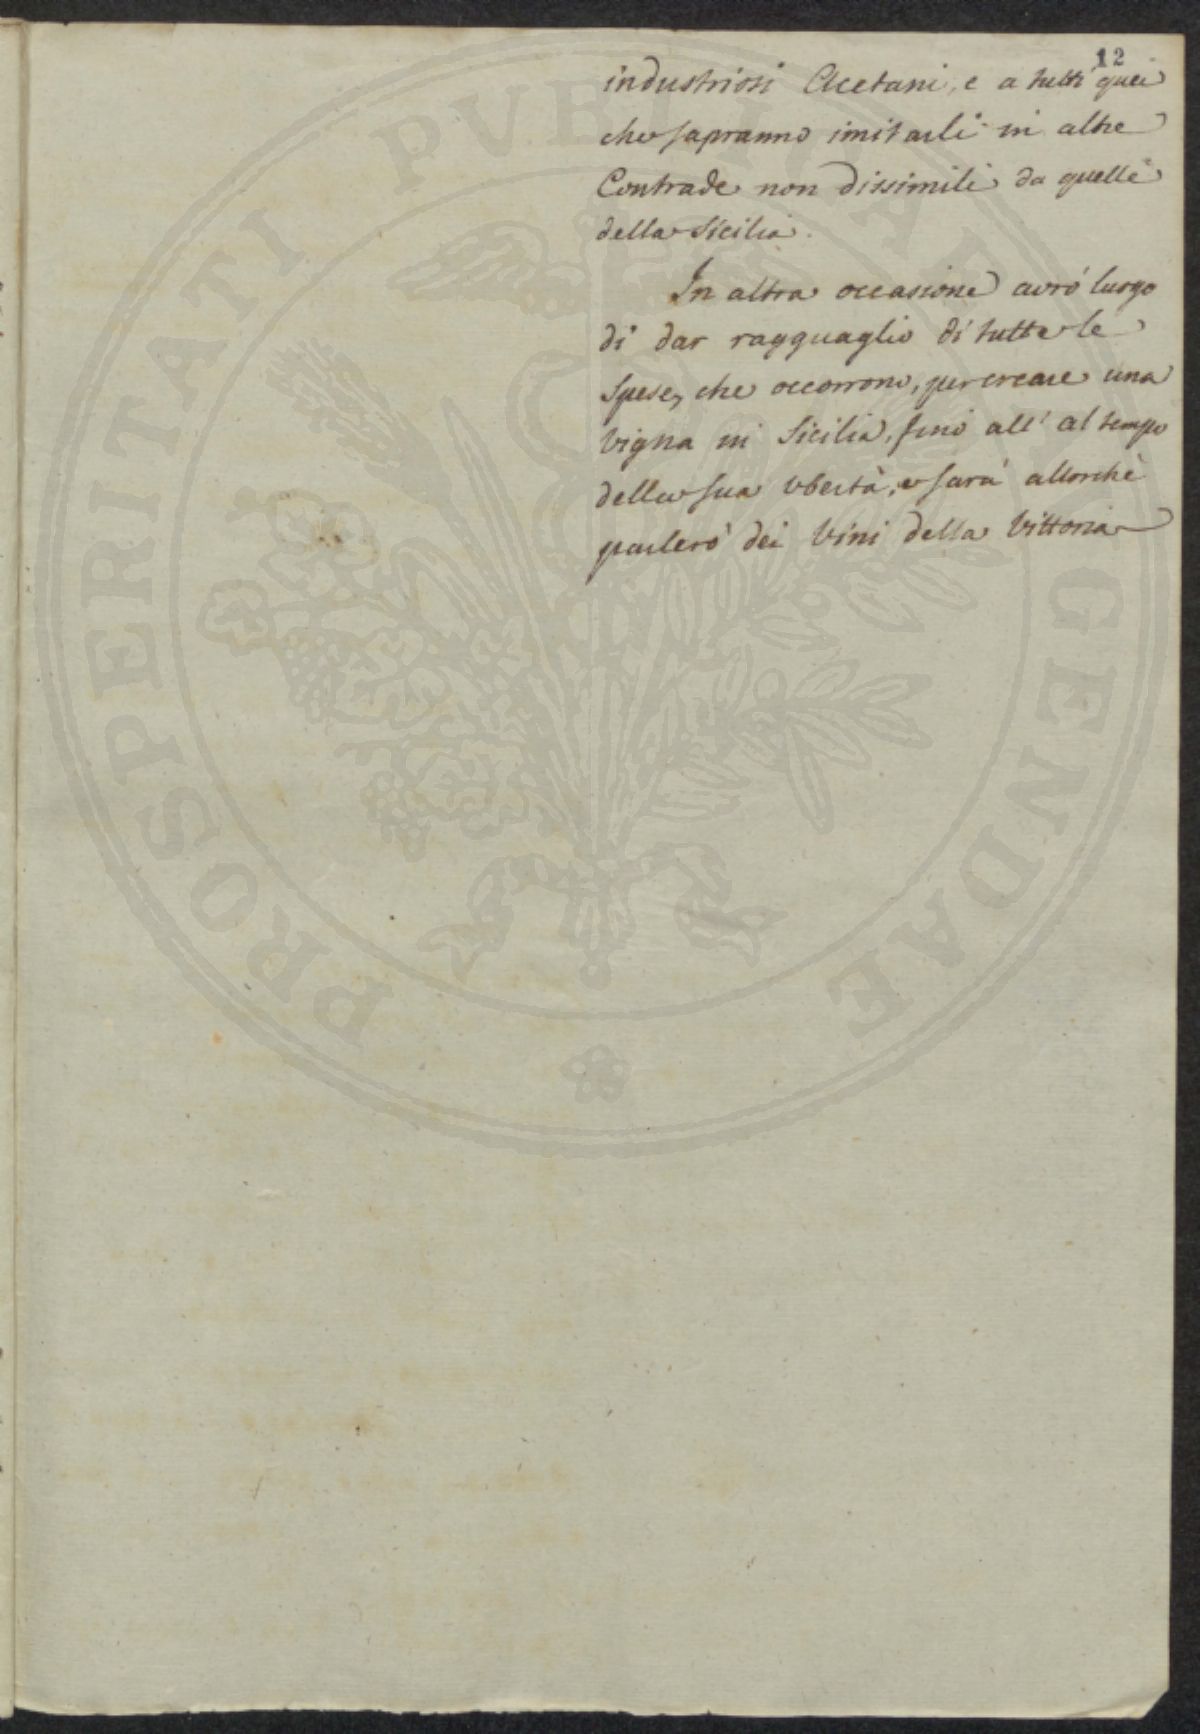 12
industriosi Acetani, e a tutti quei
che sapranno imitarli in altre
Contrade non dissimili da quelle
della Sicilia.
In altra occasione avrò luogo
di dar ragguaglio di tutte le
Spese, che occorrono, per creare una
vigna in Sicilia, fino all' al tempo
della sua ubertà, e sarà allorchè
parlerò dei Vini della Vittoria
PROSPERITATI PVBLICAE AVGENDAE